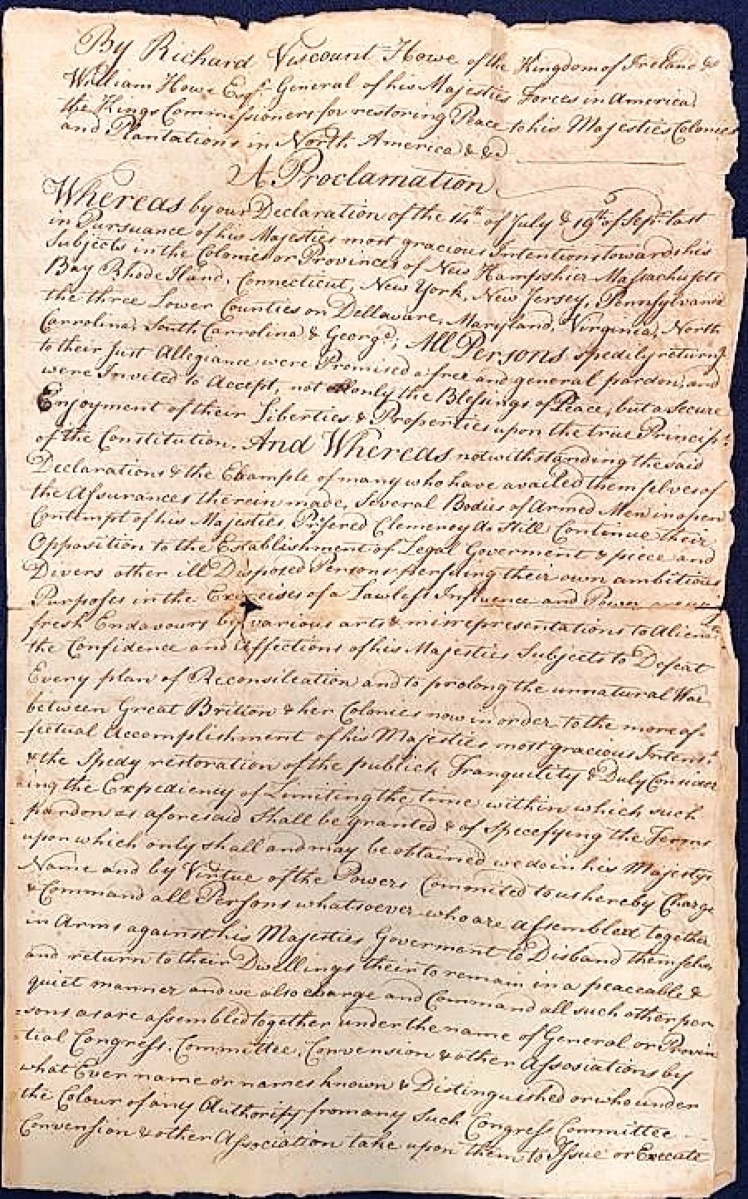 By Richard Viscount Howe of the Kingdom of Ireland &
William Howe Esqr. General of his Majesties Forces in America
the Kings Commissioners for restoring Peace to his Majesties Colonies
and Plantations in North America & &c
A Proclamation
Whereas by our Declaration of the 14th of July & 19th of Sepr. last
in Pursuance of his Majesties most gracious Intentions towards his
Subjects in the Colonies or Provinces of New Hampshier Massachusets
Bay Rhode Iland, Connecticut, New York, New Jersey, Pennsylvania
the three Lower Counties on Dellaware, Maryland, Virginia, North
Carrolina, South Carrolina & Georga, All Persons speedily returng
to their Just Allegiance were Promised a free and general pardon, and
were Invited to Accept, not only the Blessings of Peace, but a secure
Enjoyment of their Liberties & Properties upon the true Principls
of the Constitution. And Whereas notwithstanding the said
Declarations & the Example of many who have availed themselves of
the Assurances therein made, Several Bodies of Armed Men in open
Contempt of his Majesties Clemencey do Still Continue their
Opposition to the Establishment of Legal Goverment & piece and
Divers other ill Disposed Persons persuing their own ambitious
Purposes in the Exercises of a Lawless Influence and Power are using
fresh Endavours by various arts & misrepresentations to Alienate
the Confidence and affections of his Majesties Subjects to Defeat
Every plan of Reconsileation and to prolong the unnatural War
between Great Brition & her Colonies now in order to the more ef-
fectual Accomplishment of his Majesties most gracious Intents
& the Spedy restoration of the publick Tranquility & Duly Consider
ing the Expediency of Limiting the time within which such
pardon as aforesaid Shall be granted & of Specefying the Terms
upon which only shall and may be obtained we do in his Majestys
Name and by Virtue of the Powers Commited to us hereby Charge
& Command all Persons whatsoever who are assembled together
in Arms against his Majesties Goverment to Disband themselves
and return to their Dwellings their to remain in a peaceable &
quiet manner and we also charge and Command all such other per
sons as are assembled together under the name of General or Provin
tial Congress, Committee, Convension & other Assosiations by
what Ever name or names known & Distinguished or who under
the Colour of any Authority from any such Congress Committee
Convension & other Association take upon them to Issue or Execute